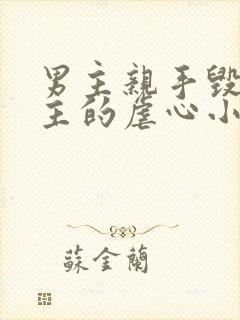 男主親手毀
主的虐心小
蘇金蘭